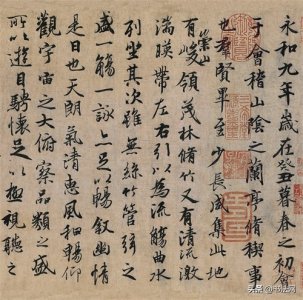 永和九年歲在癸丑暮春之初會
于會稽山陰之蘭亭脩稧事
也群賢畢至少長咸集此地
有崇山峻領茂林脩竹又有清流激
湍暎帶左右引以為流觴曲水
列坐其次雖無絲竹管弦之
盛一觴一詠亦足以暢叙幽情
是日也天朗氣清惠風和暢仰
觀宇宙之大俯察品類之盛
所以遊目騁懷足以極視聽之